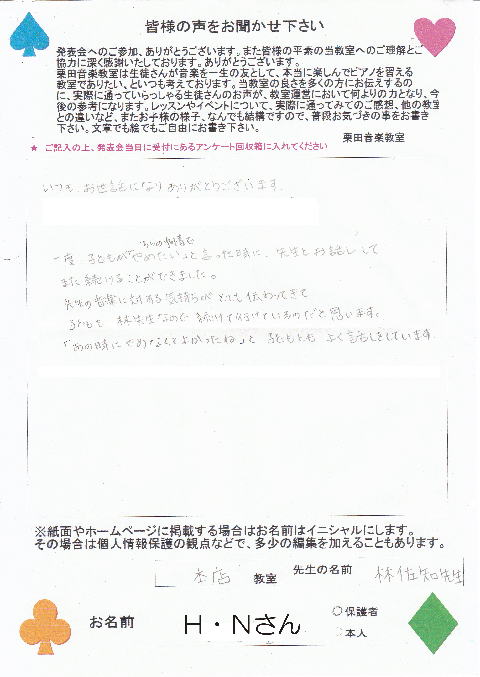 皆様の声をお聞かせ下さい
発表会へのご参加、ありがとうございます。また皆様の平素の当教室へのご理解とご
協力に深く感謝いたしております。ありがとうございます。
栗田音楽教室は生徒さんが音楽を一生の友として、本当に楽しんでピアノを習える
教室でありたい、といつも考えております。当教室の良さを多くの方にお伝えするの
に、実際に通っていらっしゃる生徒さんのお声が、教室運営において何よりの力となり、今
後の参考になります。レッスンやイベントについて、実際に通ってみてのご感想、他の教室
との違いなど、またお子様の様子、なんでも結構ですので、普段お気づきの事をお書き
下さい。文章でも絵でもご自由にお書き下さい。
栗田音楽教室
★ ご記入の上、発表会当日に受付にあるアンケート回収箱に入れてください
いつも、お世話になりありがとうございます。
一度 子どもが「やめたい」と言った時に、先生とお話しして
また続けることができました。
先生の音楽に対する気持ちが とても伝わってきて
子どもも 林先生なので 続けて行けているのだと思います。
「あの時にやめなくてよかったね」と 子どもとも よく話しをしています。
※紙面やホームページに掲載する場合はお名前はイニシャルにします。
その場合は個人情報保護の観点などで、多少の編集を加えることもあります。
本店 教室 先生の名前 林佐知先生
お名前 H・Nさん ○保護者
○本人